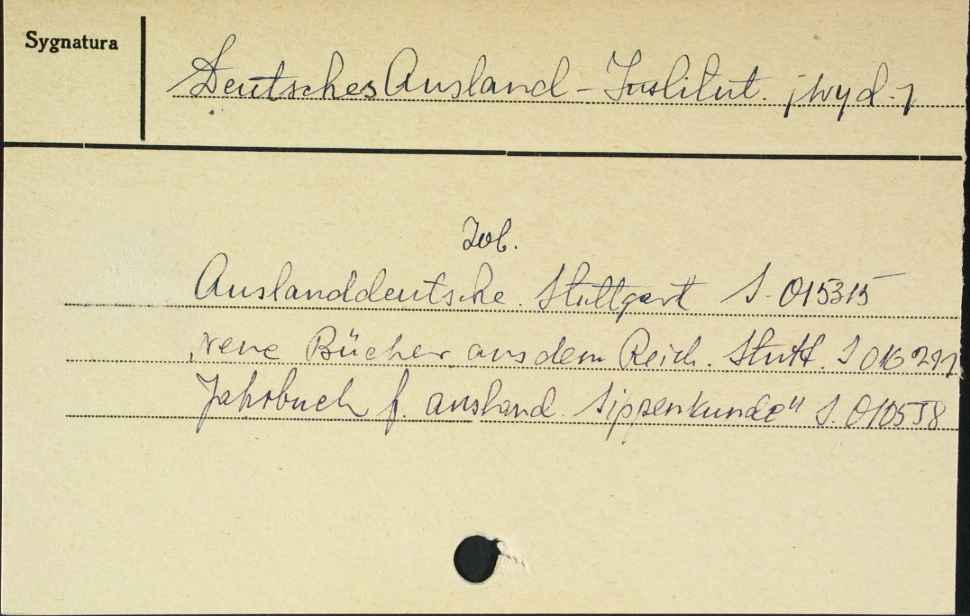 Sygnatura
Deutsches Ausland-Institut. /wyd./
Zob.
Auslanddeutsche. Stuttgart S. 015315
Neue Bücher aus dem Reich. Stutt. S 016291
Jahrbuch f. ausland. Sippenkunde" S. 010558